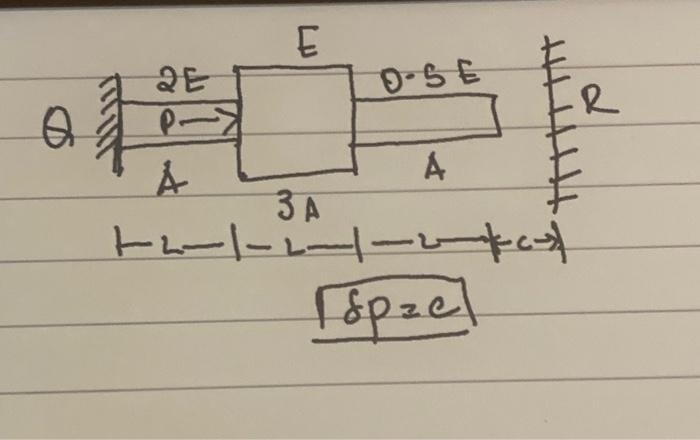 E
2E
0-5 E
Q
P→
R
A
A
3A
L
L
L
c
δp=c